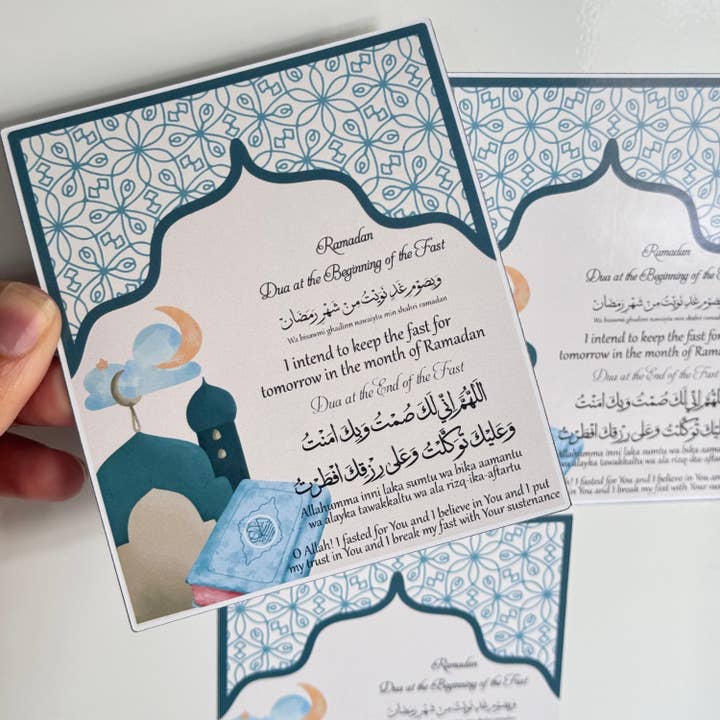 Ramadan
Dua at the Beginning of the Fast
وَبِصَوْمِ غَدٍ نَوَيْتُ مِنْ شَهْرِ رَمَضَانَ
Wa bisawmi ghadinn nawaiytu min shahri ramadan
I intend to keep the fast for
tomorrow in the month of Ramadan
Dua at the End of the Fast
اَللّٰهُمَّ اِنِّى لَكَ صُمْتُ وَبِكَ امَنْتُ
وَعَلَيْكَ تَوَكَّلْتُ وَعَلَى رِزْقِكَ اَفْطَرْتُ
Allahumma inni laka sumtu wa bika aamantu
wa alayka tawakkaltu wa ala rizq-ika-aftartu
O Allah! I fasted for You and I believe in You and I put
my trust in You and I break my fast with Your sustenance
Ramadan
Dua at the Beginning of the Fast
وَبِصَوْمِ غَدٍ نَوَيْتُ مِنْ شَهْرِ رَمَضَانَ
Wa bisawmi ghadinn nawaiytu min shahri ramadan
I intend to keep the fast for
tomorrow in the month of Ramadan
Dua at the End of the Fast
اَللّٰهُمَّ اِنِّى لَكَ صُمْتُ وَبِكَ امَنْتُ
وَعَلَيْكَ تَوَكَّلْتُ وَعَلَى رِزْقِكَ اَفْطَرْتُ
Allahumma inni laka sumtu wa bika aamantu
wa alayka tawakkaltu wa ala rizq-ika-aftartu
I fasted for You and I believe in You and I put
in You and I break my fast with Your sustenance
Ramadan
Dua at the Beginning of the Fast
وَبِصَوْمِ غَدٍ نَوَيْتُ مِنْ شَهْرِ رَمَضَانَ